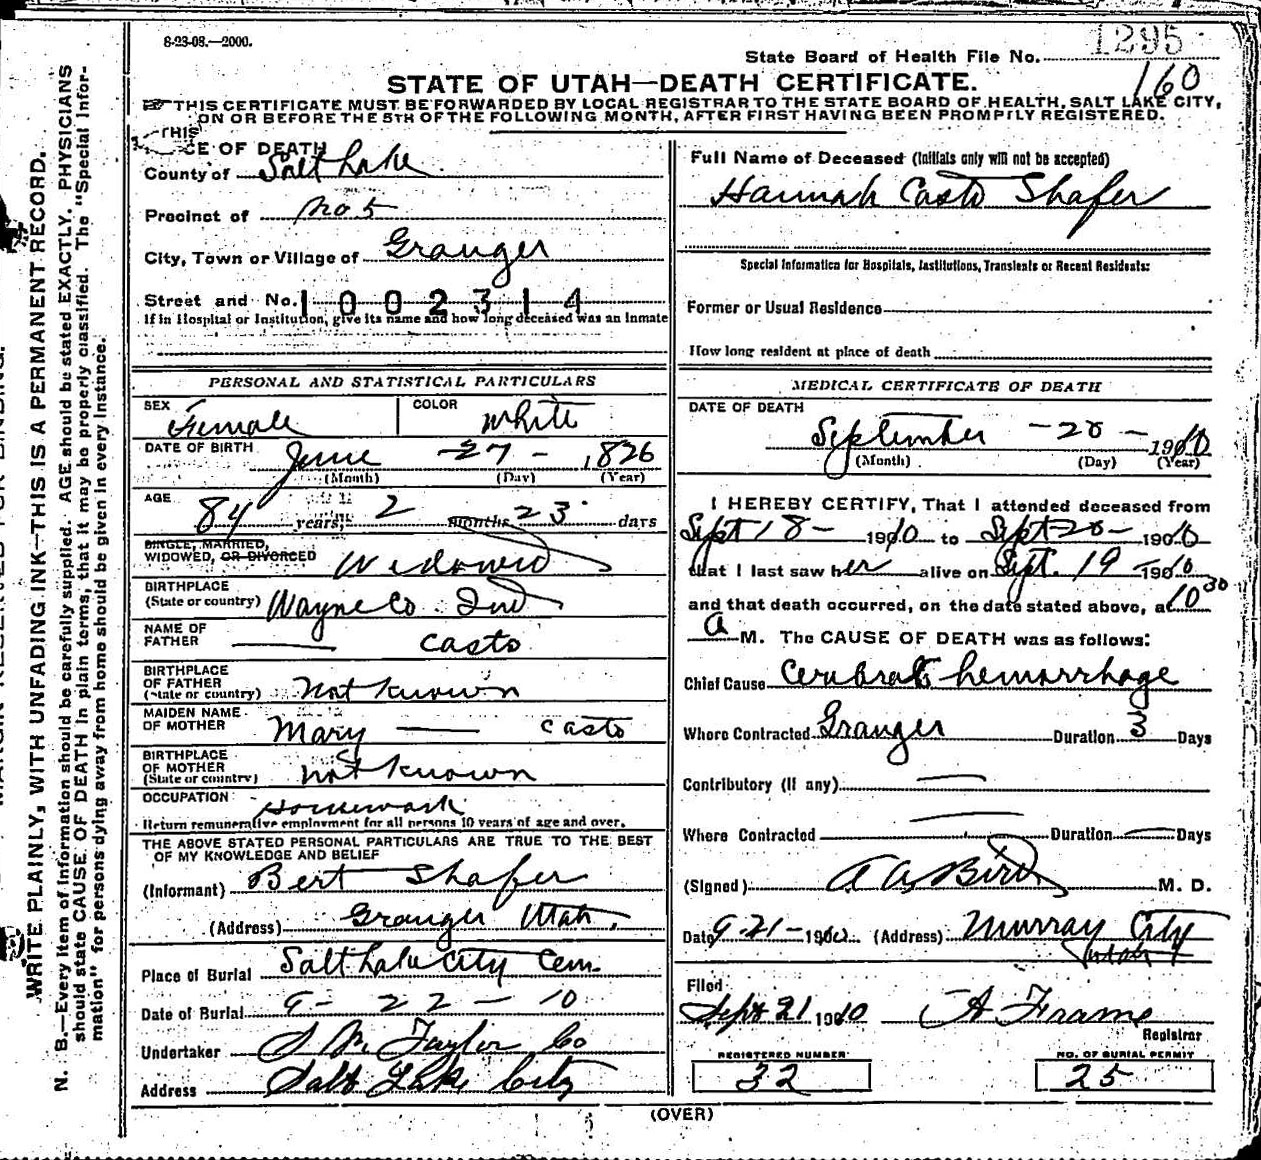 8-23-08.—2000.
State Board of Health File No. 1295
160
STATE OF UTAH—DEATH CERTIFICATE.
THIS CERTIFICATE MUST BE FORWARDED BY LOCAL REGISTRAR TO THE STATE BOARD OF HEALTH, SALT LAKE CITY,
ON OR BEFORE THE 5TH OF THE FOLLOWING MONTH, AFTER FIRST HAVING BEEN PROMPTLY REGISTERED.
THIS
CE OF DEATH
County of Salt Lake
Precinct of No 5
City, Town or Village of Granger
Street and No. 1002314
If in Hospital or Institution, give its name and how long deceased was an Inmate
PERSONAL AND STATISTICAL PARTICULARS
SEX Female COLOR White
DATE OF BIRTH June -27- 1826
(Month) (Day) (Year)
AGE 84 years, 2 months 23 days
SINGLE, MARRIED,
WIDOWED, OR DIVORCED Widowed
BIRTHPLACE
(State or country) Wayne Co Ind
NAME OF
FATHER — Casto
BIRTHPLACE
OF FATHER
(State or country) Not Known
MAIDEN NAME
OF MOTHER Mary — Casto
BIRTHPLACE
OF MOTHER
(State or country) Not Known
OCCUPATION Housework
Return remunerative employment for all persons 10 years of age and over.
THE ABOVE STATED PERSONAL PARTICULARS ARE TRUE TO THE BEST
OF MY KNOWLEDGE AND BELIEF
(Informant) Bert Shafer
(Address) Granger Utah,
Place of Burial Salt Lake City Cem
Date of Burial 9-22-10
Undertaker S M Taylor Co
Address Salt Lake City
Full Name of Deceased (Initials only will not be accepted)
Hannah Casto Shafer
Special Information for Hospitals, Institutions, Transients or Recent Residents:
Former or Usual Residence
How long resident at place of death
MEDICAL CERTIFICATE OF DEATH
DATE OF DEATH
September -20- 1910
(Month) (Day) (Year)
I HEREBY CERTIFY, That I attended deceased from
Sept 18- 1910 to Sept 20- 1910
that I last saw her alive on Sept. 19 - 1910
and that death occurred, on the date stated above, at 10 30
a M. The CAUSE OF DEATH was as follows:
Chief Cause Cerebral hemorrhage
Where Contracted Granger Duration 3 Days
Contributory (If any) —
Where Contracted — Duration — Days
(Signed) A A Bird M. D.
Date 9-21-1910 (Address) Murray City
Utah
Filed
Sept 21 1910 Registrar
REGISTERED NUMBER
32
NO. OF BURIAL PERMIT
25
(OVER)
WRITE PLAINLY, WITH UNFADING INK—THIS IS A PERMANENT RECORD.
N. B.—Every item of information should be carefully supplied. AGE should be stated EXACTLY. PHYSICIANS
should state CAUSE OF DEATH in plain terms, that it may be properly classified. The "Special Infor-
mation" for persons dying away from home should be given in every instance.